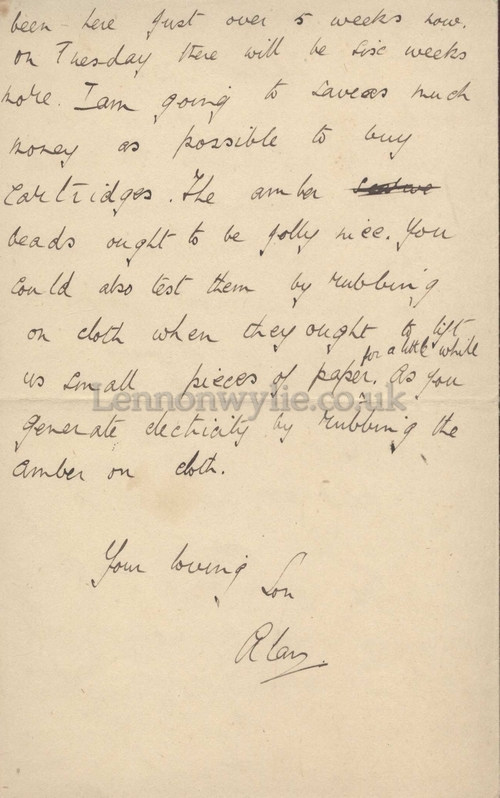 been here just over 5 weeks now.
on Tuesday there will be six weeks
more. I am going to save as much
money as possible to buy
Cartridges. The amber
beads ought to be jolly nice. You
could also test them by rubbing
on cloth when they ought to lift
for a little while
us small pieces of paper. As you
Lennonwylie.co.uk
generate electricity by rubbing the
amber on cloth.
Your loving
Son
Alan